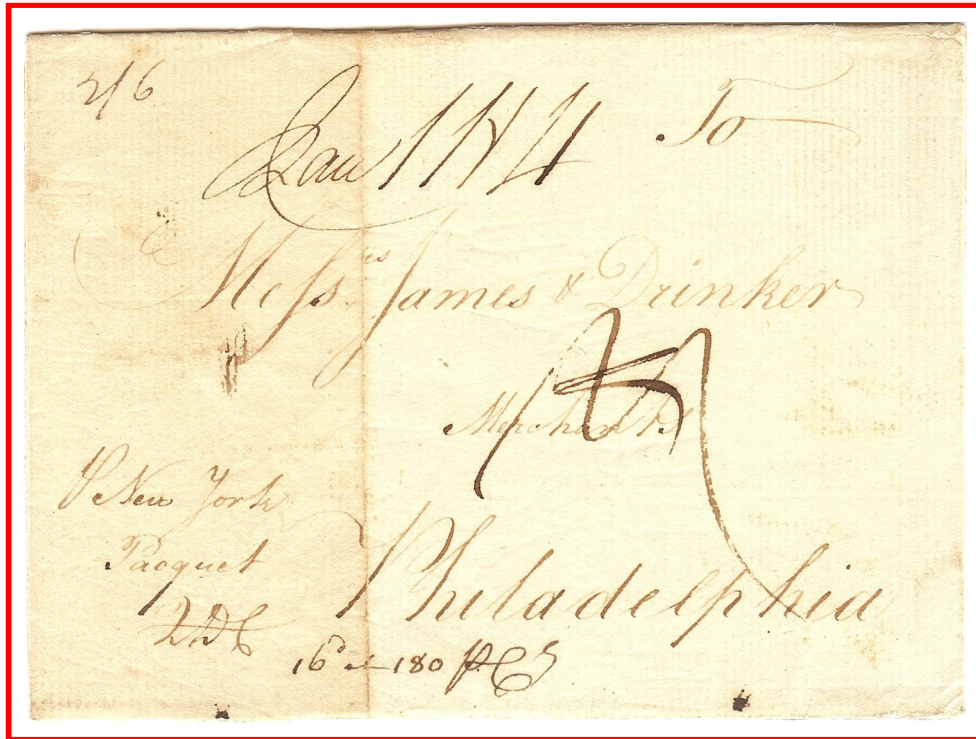 2/6
To
Messrs James & Drinker
Merchants
⅌ New York
Pacquet
Philadelphia
16d 180